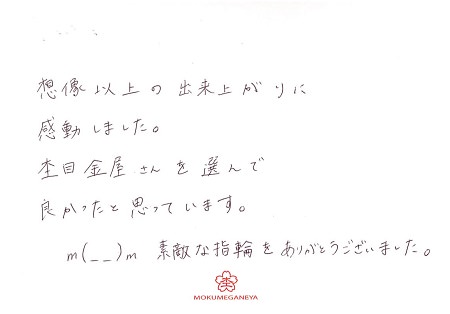 想像以上の出来上がりに
感動しました。
杢目金屋さんを選んで
良かったと思っています。
m(__)m 素敵な指輪をありがとうございました。
杢
MOKUMEGANEYA